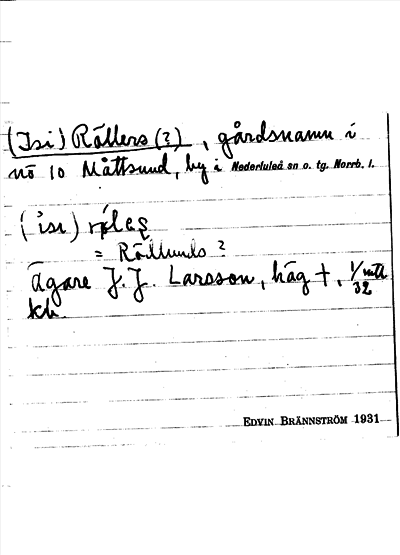 (Isi) Rällers (?), gårdsnamn i
nö 10 Måttsund, by i Nederluleå sn o. tg. Norrb. l.
(isi)
= Rödlunds ?
ägare J. J. Larsson, häg †, 1/32 mtl
kh
EDVIN BRÄNNSTRÖM 1931